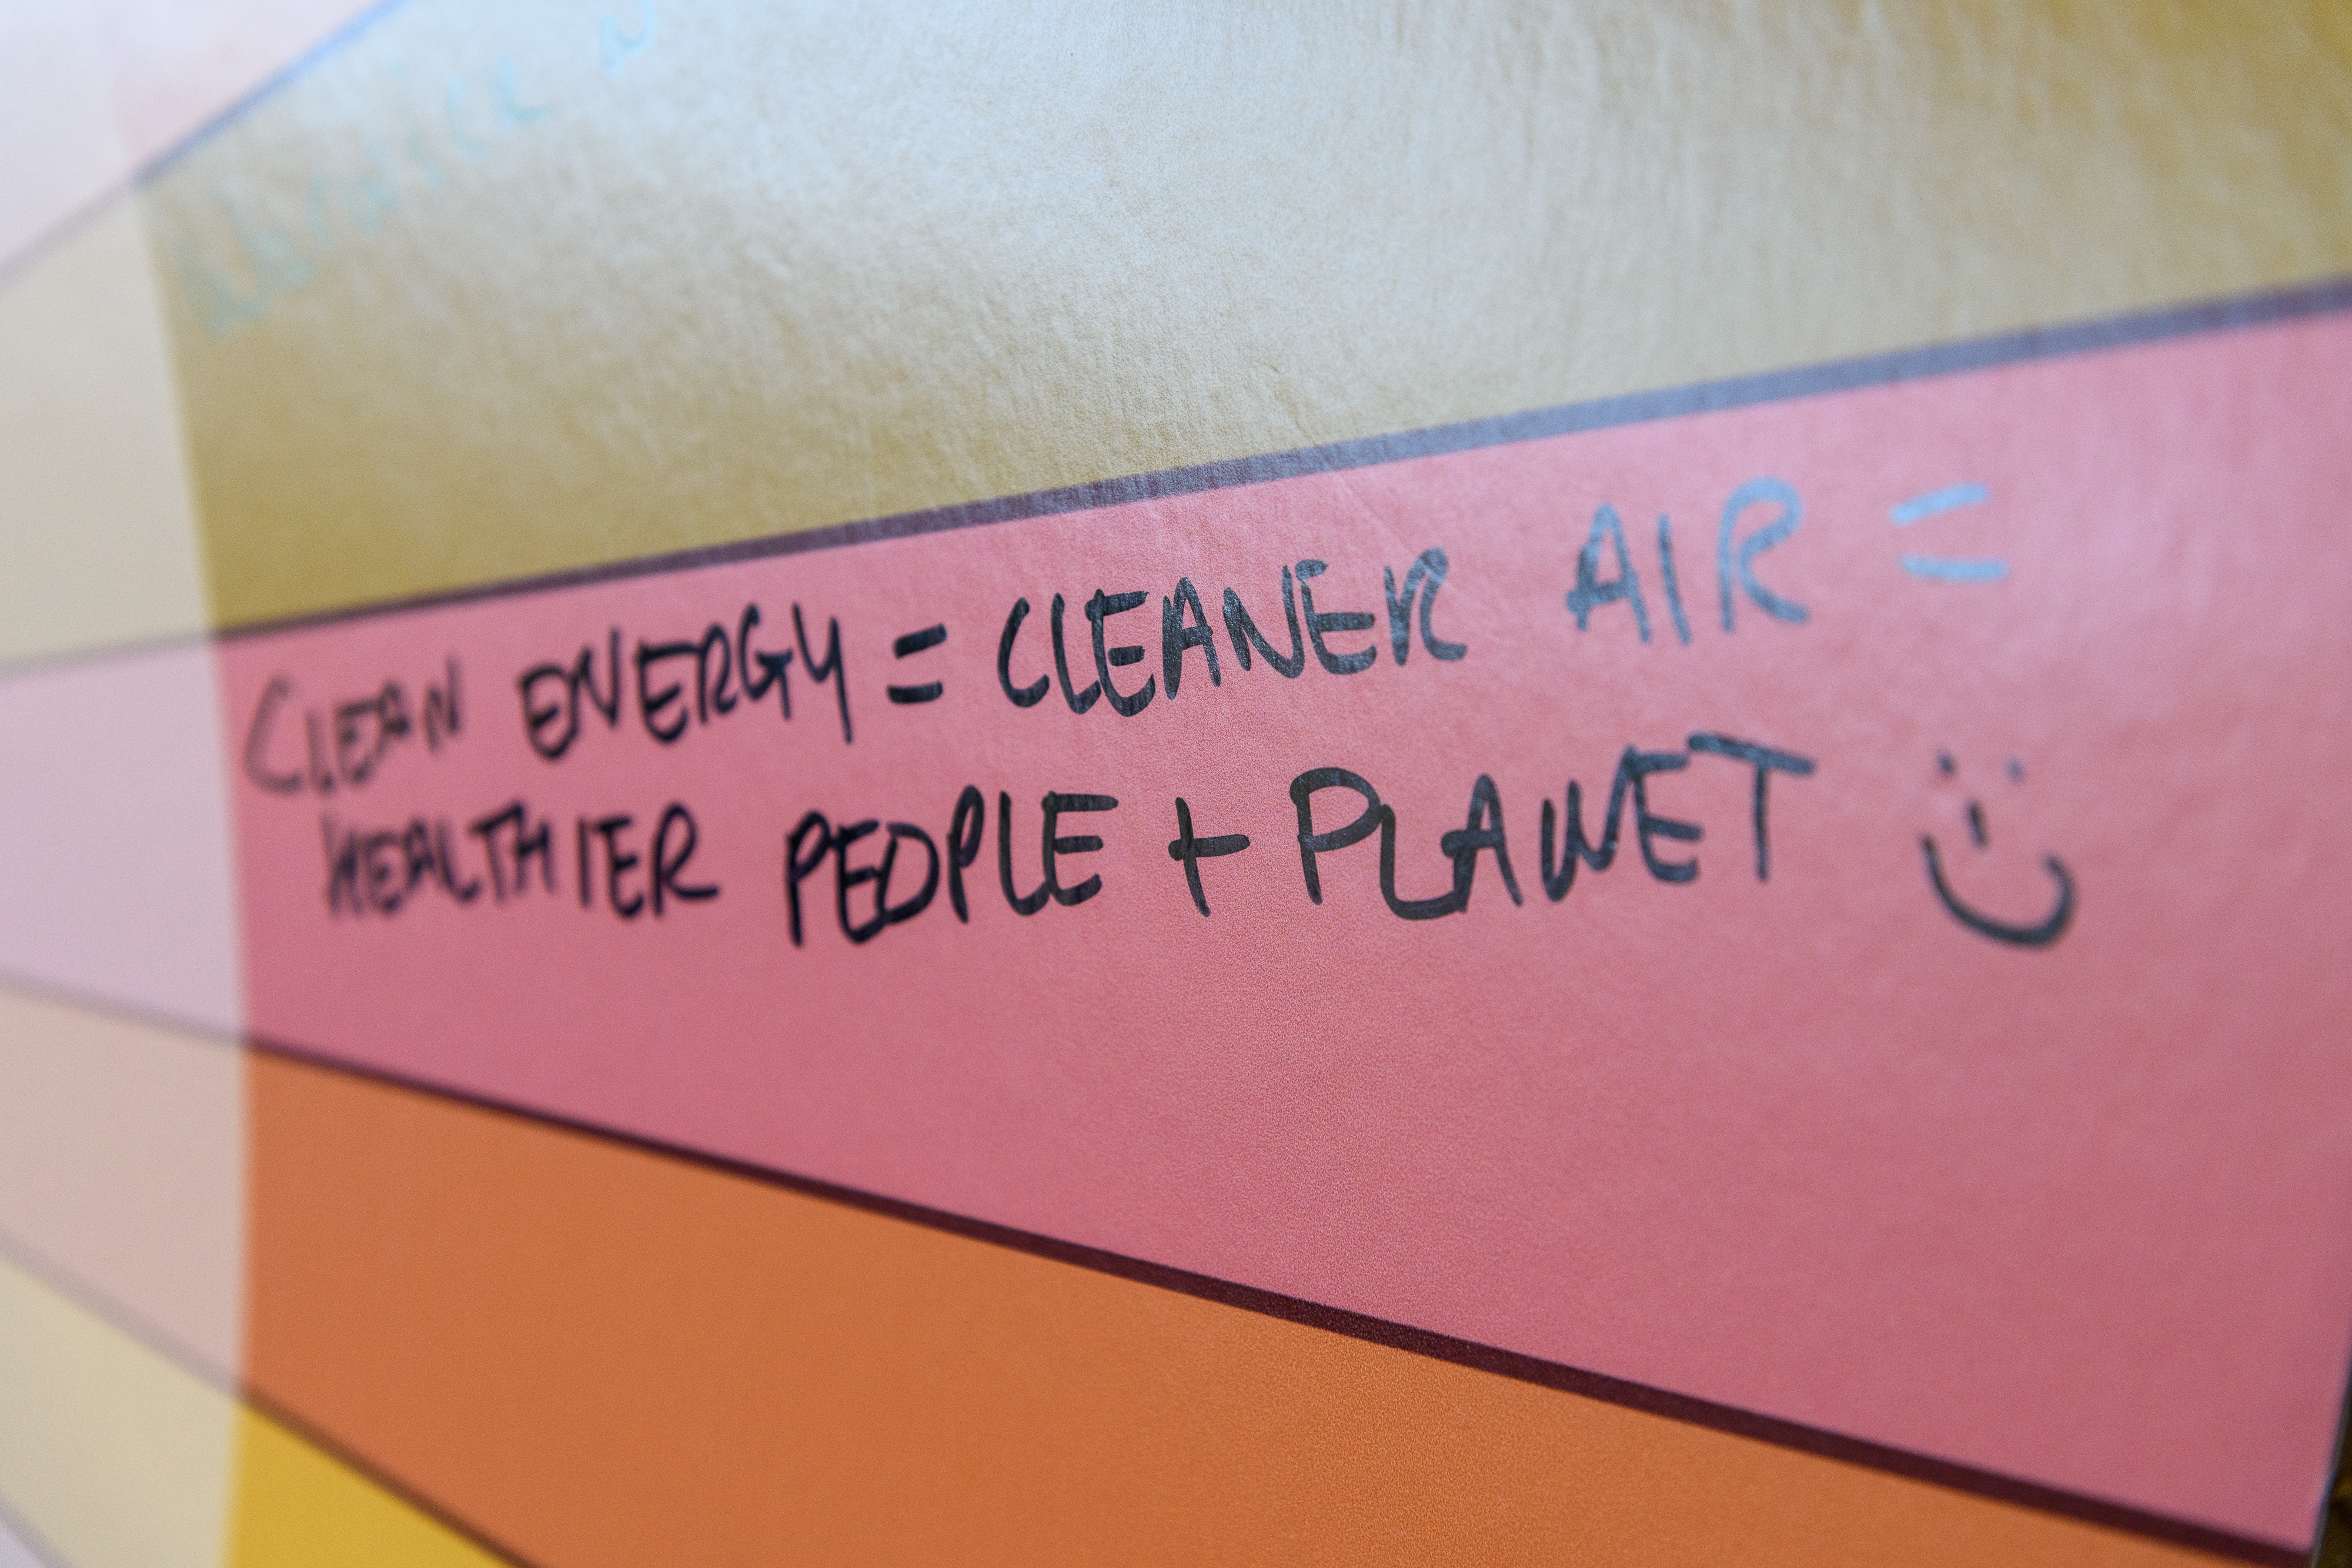 CLEAN ENERGY = CLEANER AIR =
HEALTHIER PEOPLE + PLANET